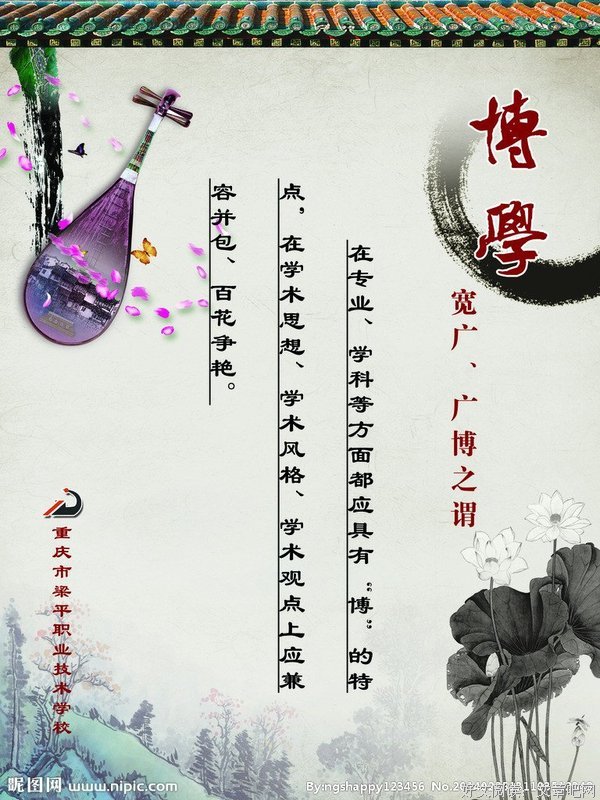 博學
宽广、广博之谓
在专业、学科等方面都应具有“博”的特
点，在学术思想、学术风格、学术观点上应兼
容并包、百花争艳。
重庆市梁平职业技术学校
昵图网 www.nipic.com